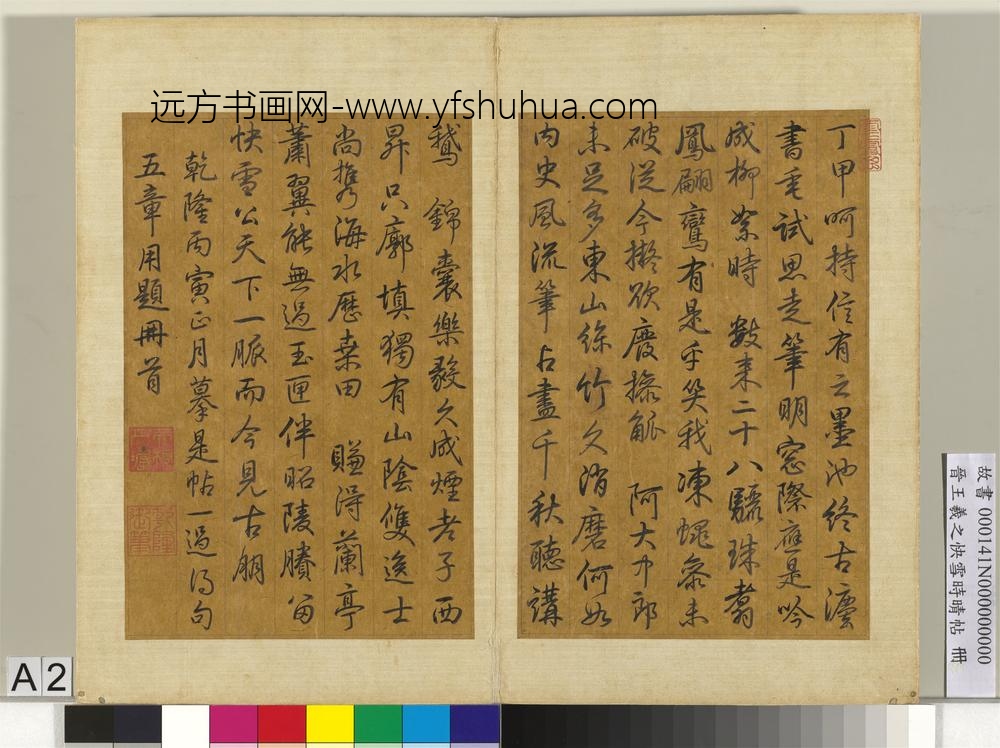 远方书画网-www.yfshuhua.com
丁甲呵持信有之墨池終古瀋
書毛試思走筆明窓際應是吟
成柳絮時 數來二十八驪珠翥
鳳翩鸞有是乎笑我凍蠅參未
破從今擬欲廢操觚 阿大中郎
未足多東山絲竹久消磨何如
内史風流筆占盡千秋聽講
鵝 錦囊樂毅久成煙老子西
昇只廓填獨有山陰雙逸士
尚携海水歷桒田 賺得蘭亭
蕭翼能無過玉匣伴昭陵賸留
快雪公天下一脈而今見古朋
乾隆丙寅正月摹是帖一過得句
五章用題冊首
故書 000141N000000000
晉王羲之快雪時晴帖 冊
A2